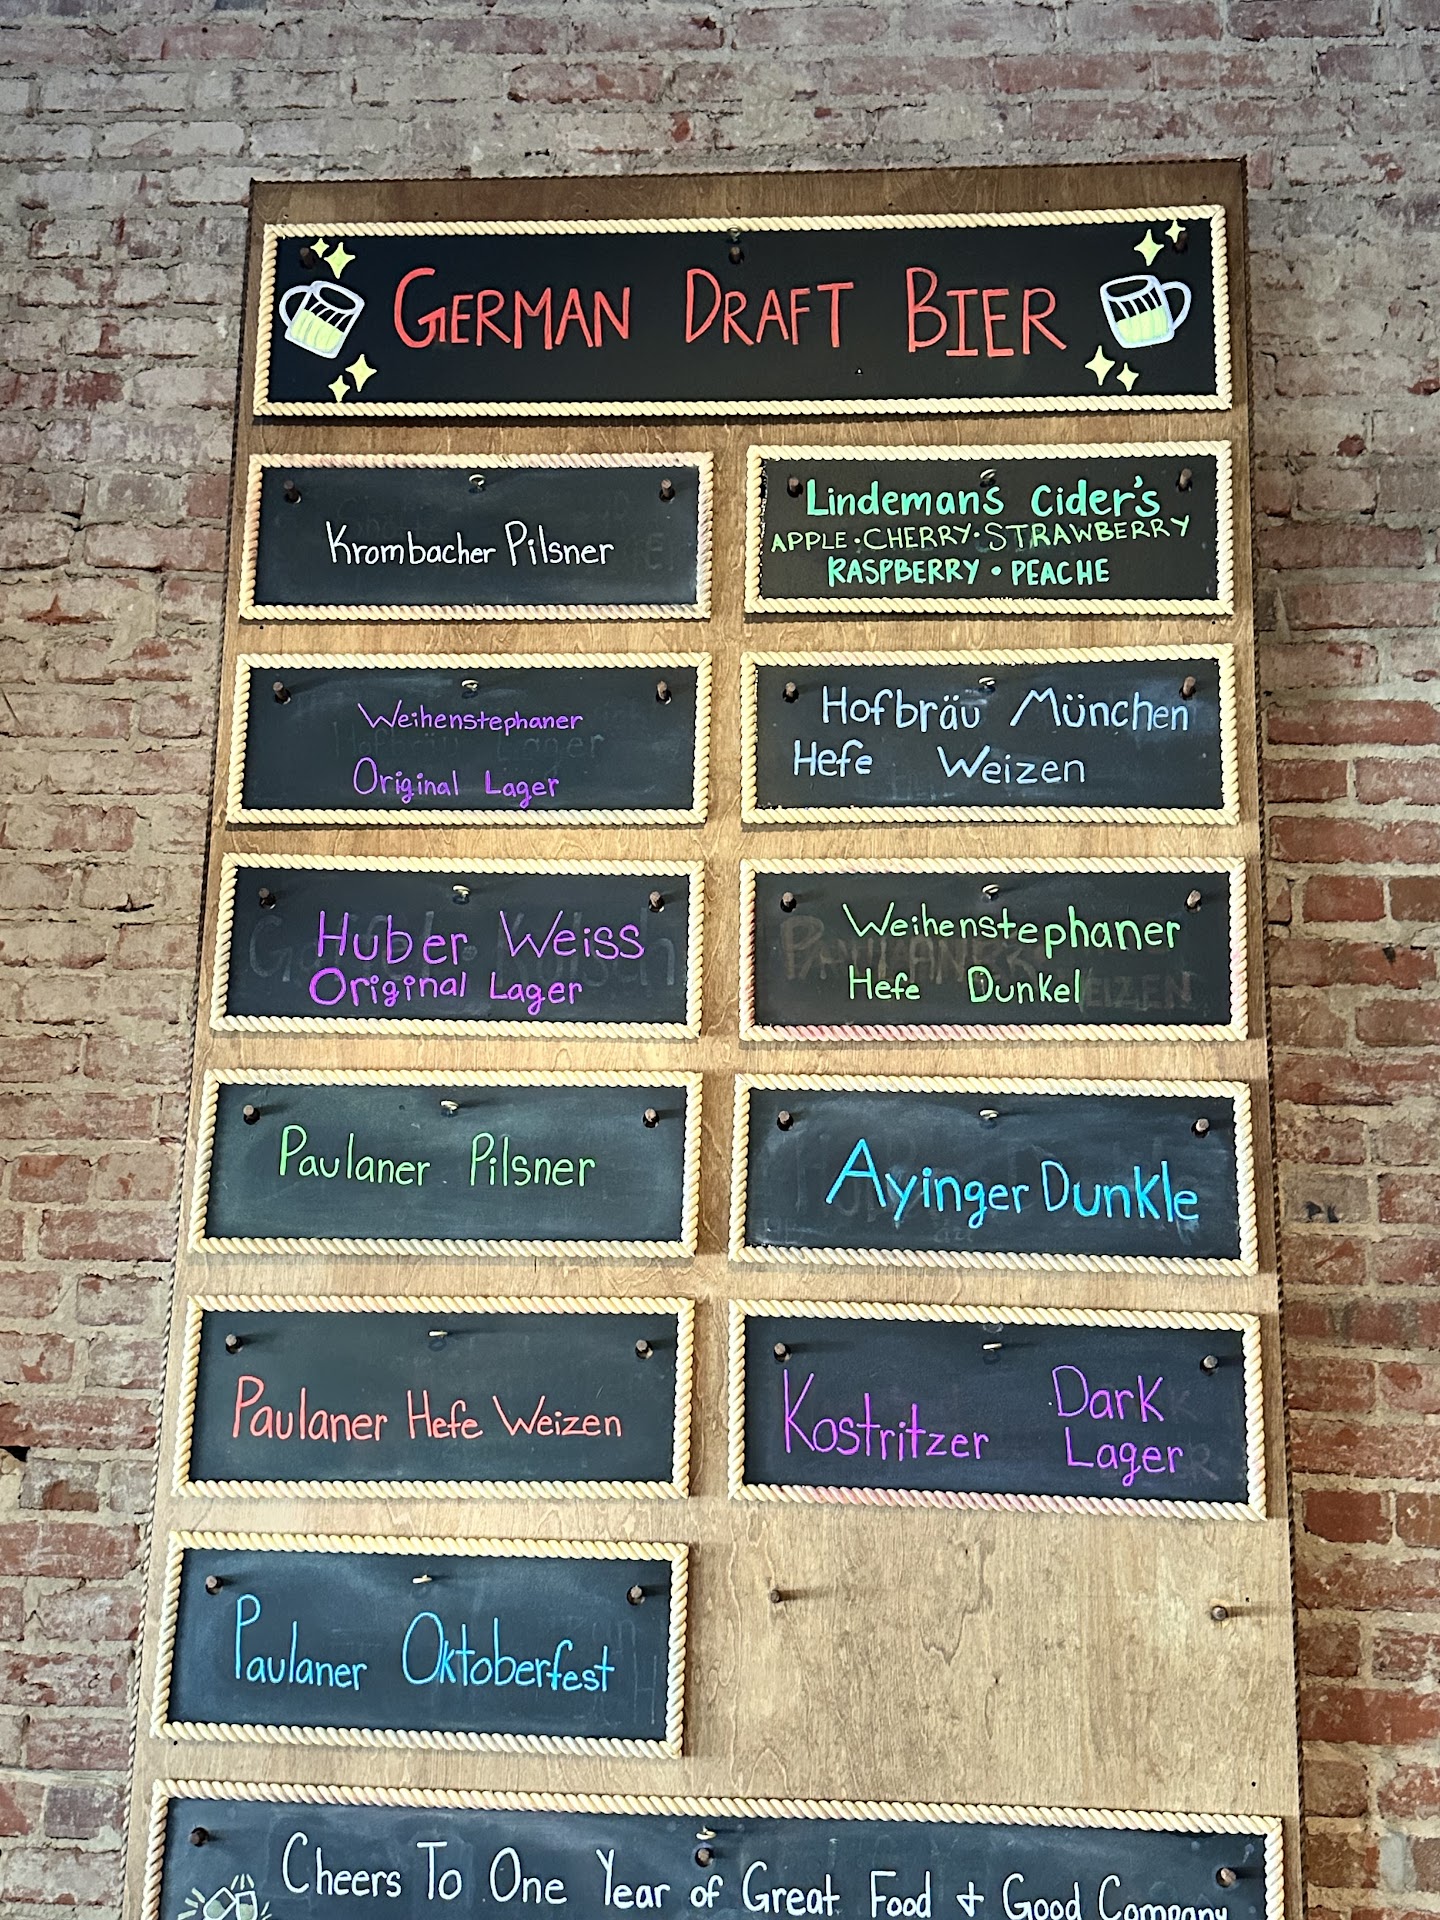 GERMAN DRAFT BIER
Krombacher Pilsner
Lindeman's Cider's
APPLE • CHERRY • STRAWBERRY
RASPBERRY • PEACHE
Weihenstephaner
Original Lager
Hofbräu München
Hefe Weizen
Huber Weiss
Original Lager
Weihenstephaner
Hefe Dunkel
Paulaner Pilsner
Ayinger Dunkle
Paulaner Hefe Weizen
Kostritzer Dark
Lager
Paulaner Oktoberfest
Cheers To One Year of Great Food + Good Company